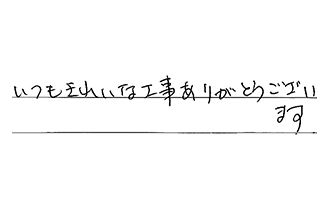 いつもきれいな工事ありがとうござい
ます